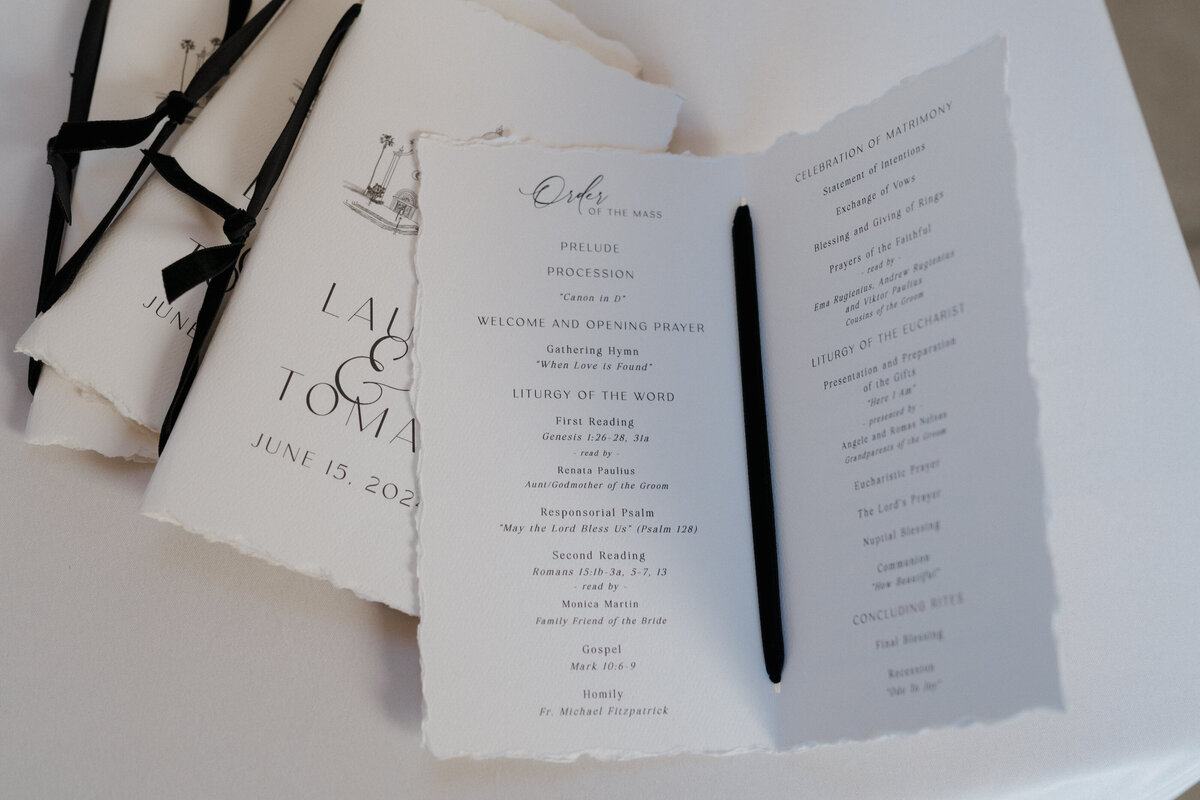 LAU
&
TOMA
JUNE 15, 202
JUNE
Order
OF THE MASS
PRELUDE
PROCESSION
"Canon in D"
WELCOME AND OPENING PRAYER
Gathering Hymn
"When Love is Found"
LITURGY OF THE WORD
First Reading
Genesis 1:26-28, 31a
- read by -
Renata Paulius
Aunt/Godmother of the Groom
Responsorial Psalm
"May the Lord Bless Us" (Psalm 128)
Second Reading
Romans 15:1b-3a, 5-7, 13
- read by -
Monica Martin
Family Friend of the Bride
Gospel
Mark 10:6-9
Homily
Fr. Michael Fitzpatrick
CELEBRATION OF MATRIMONY
Statement of Intentions
Exchange of Vows
Blessing and Giving of Rings
Prayers of the Faithful
- read by -
Ema Rugienius, Andrew Rugienius
and Viktor Paulius
Cousins of the Groom
LITURGY OF THE EUCHARIST
Presentation and Preparation
of the Gifts
"Here I Am"
- presented by -
Angele and Romas Nelsas
Grandparents of the Groom
Eucharistic Prayer
The Lord's Prayer
Nuptial Blessing
Communion
"How Beautiful"
CONCLUDING RITES
Final Blessing
Recession
"Ode To Joy"